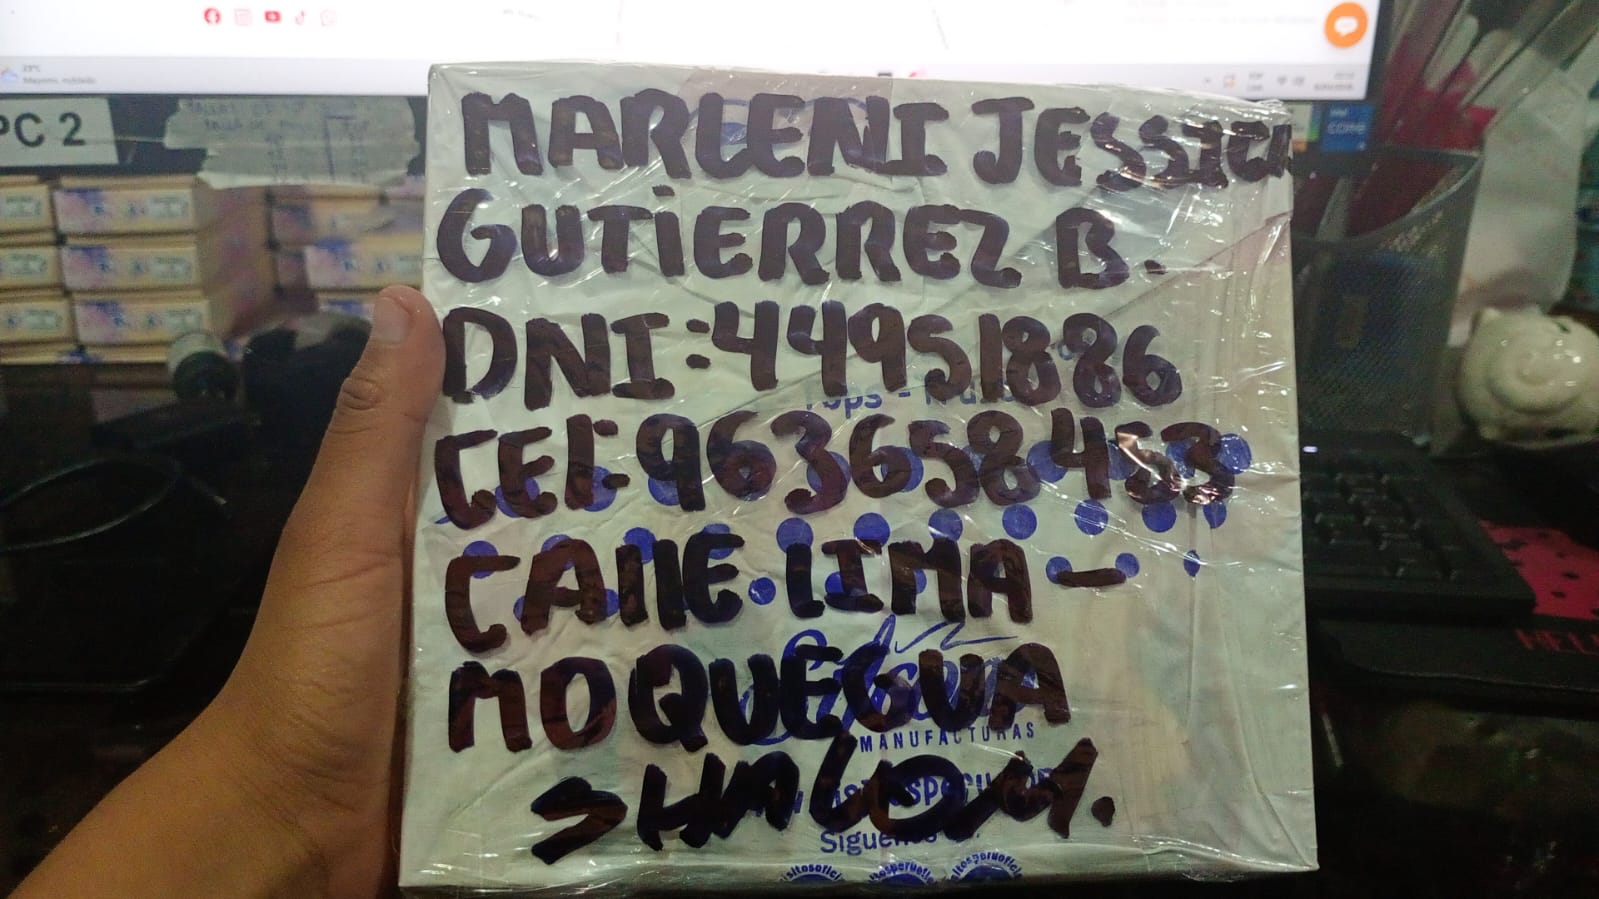 PC 2
MARLENI JESSICA
GUTIERREZ B.
DNI:44951886
CEL:963658453
CALLE LIMA -
MOQUEGUA
SHALOM.
MANUFACTURAS
23°C
CORE